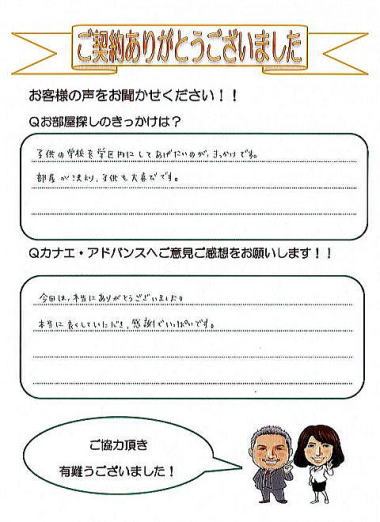 ご契約ありがとうございました
お客様の声をお聞かせください！！
Qお部屋探しのきっかけは？
子供の学校を学区内にしてあげたいのが、きっかけですね。
部屋が決まり、子供も大喜びです。
Qカナエ・アドバンスへご意見ご感想をお願いします！！
今回は、本当にありがとうございました。
本当に良くしていただき、感謝でいっぱいです。
ご協力頂き
有難うございました！